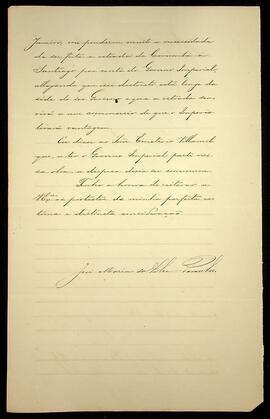 Janeiro, me ponderou muito a necessidade
de ser feita a estrada de Corumbá á
Santiago por conta do Governo Imperial,
allegando que esse districto está longe da
séde do seu Governo e que a estrada ser-
virá a um commercio de que o Imperio
tirará vantagem.
Eu disse ao Snr.
que, a ter o Governo Imperial parte nes-
sa obra, a despeza devia ser commum.
Tenho a honra de reiterar a
V Exa os protestos da minha perfeita es-
tima e distincta consideração.
José Maria da Silva Paranhos.